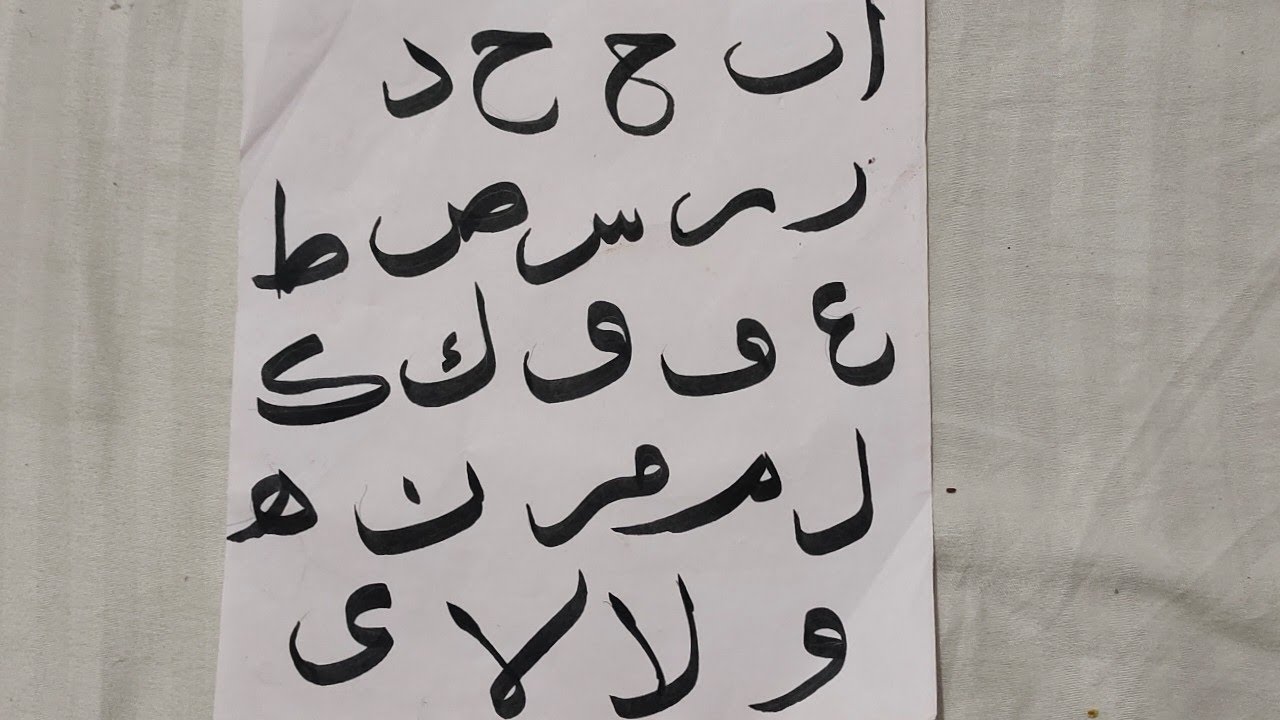 ا ٮ ح ح د
ر ر س ص ط
ع ڡ ٯ ك ک
ل م م ن ه
و لا لا ى